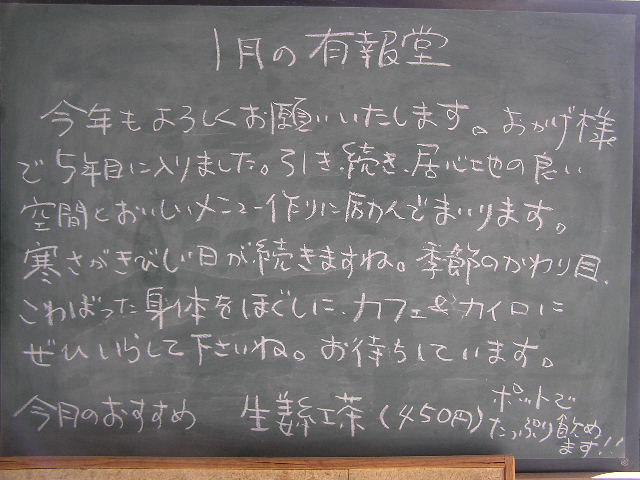 1月の有報堂
今年もよろしくお願いいたします。おかげ様
で5年目に入りました。引き続き、居心地の良い
空間とおいしいメニュー作りに励んでまいります。
寒さがきびしい日が続きますね。季節のかわり目、
こわばった身体をほぐしに、カフェ&カイロに
ぜひいらして下さいね。お待ちしています。
今月のおすすめ 生姜紅茶(450円)ポットで
たっぷり飲め
ます!!